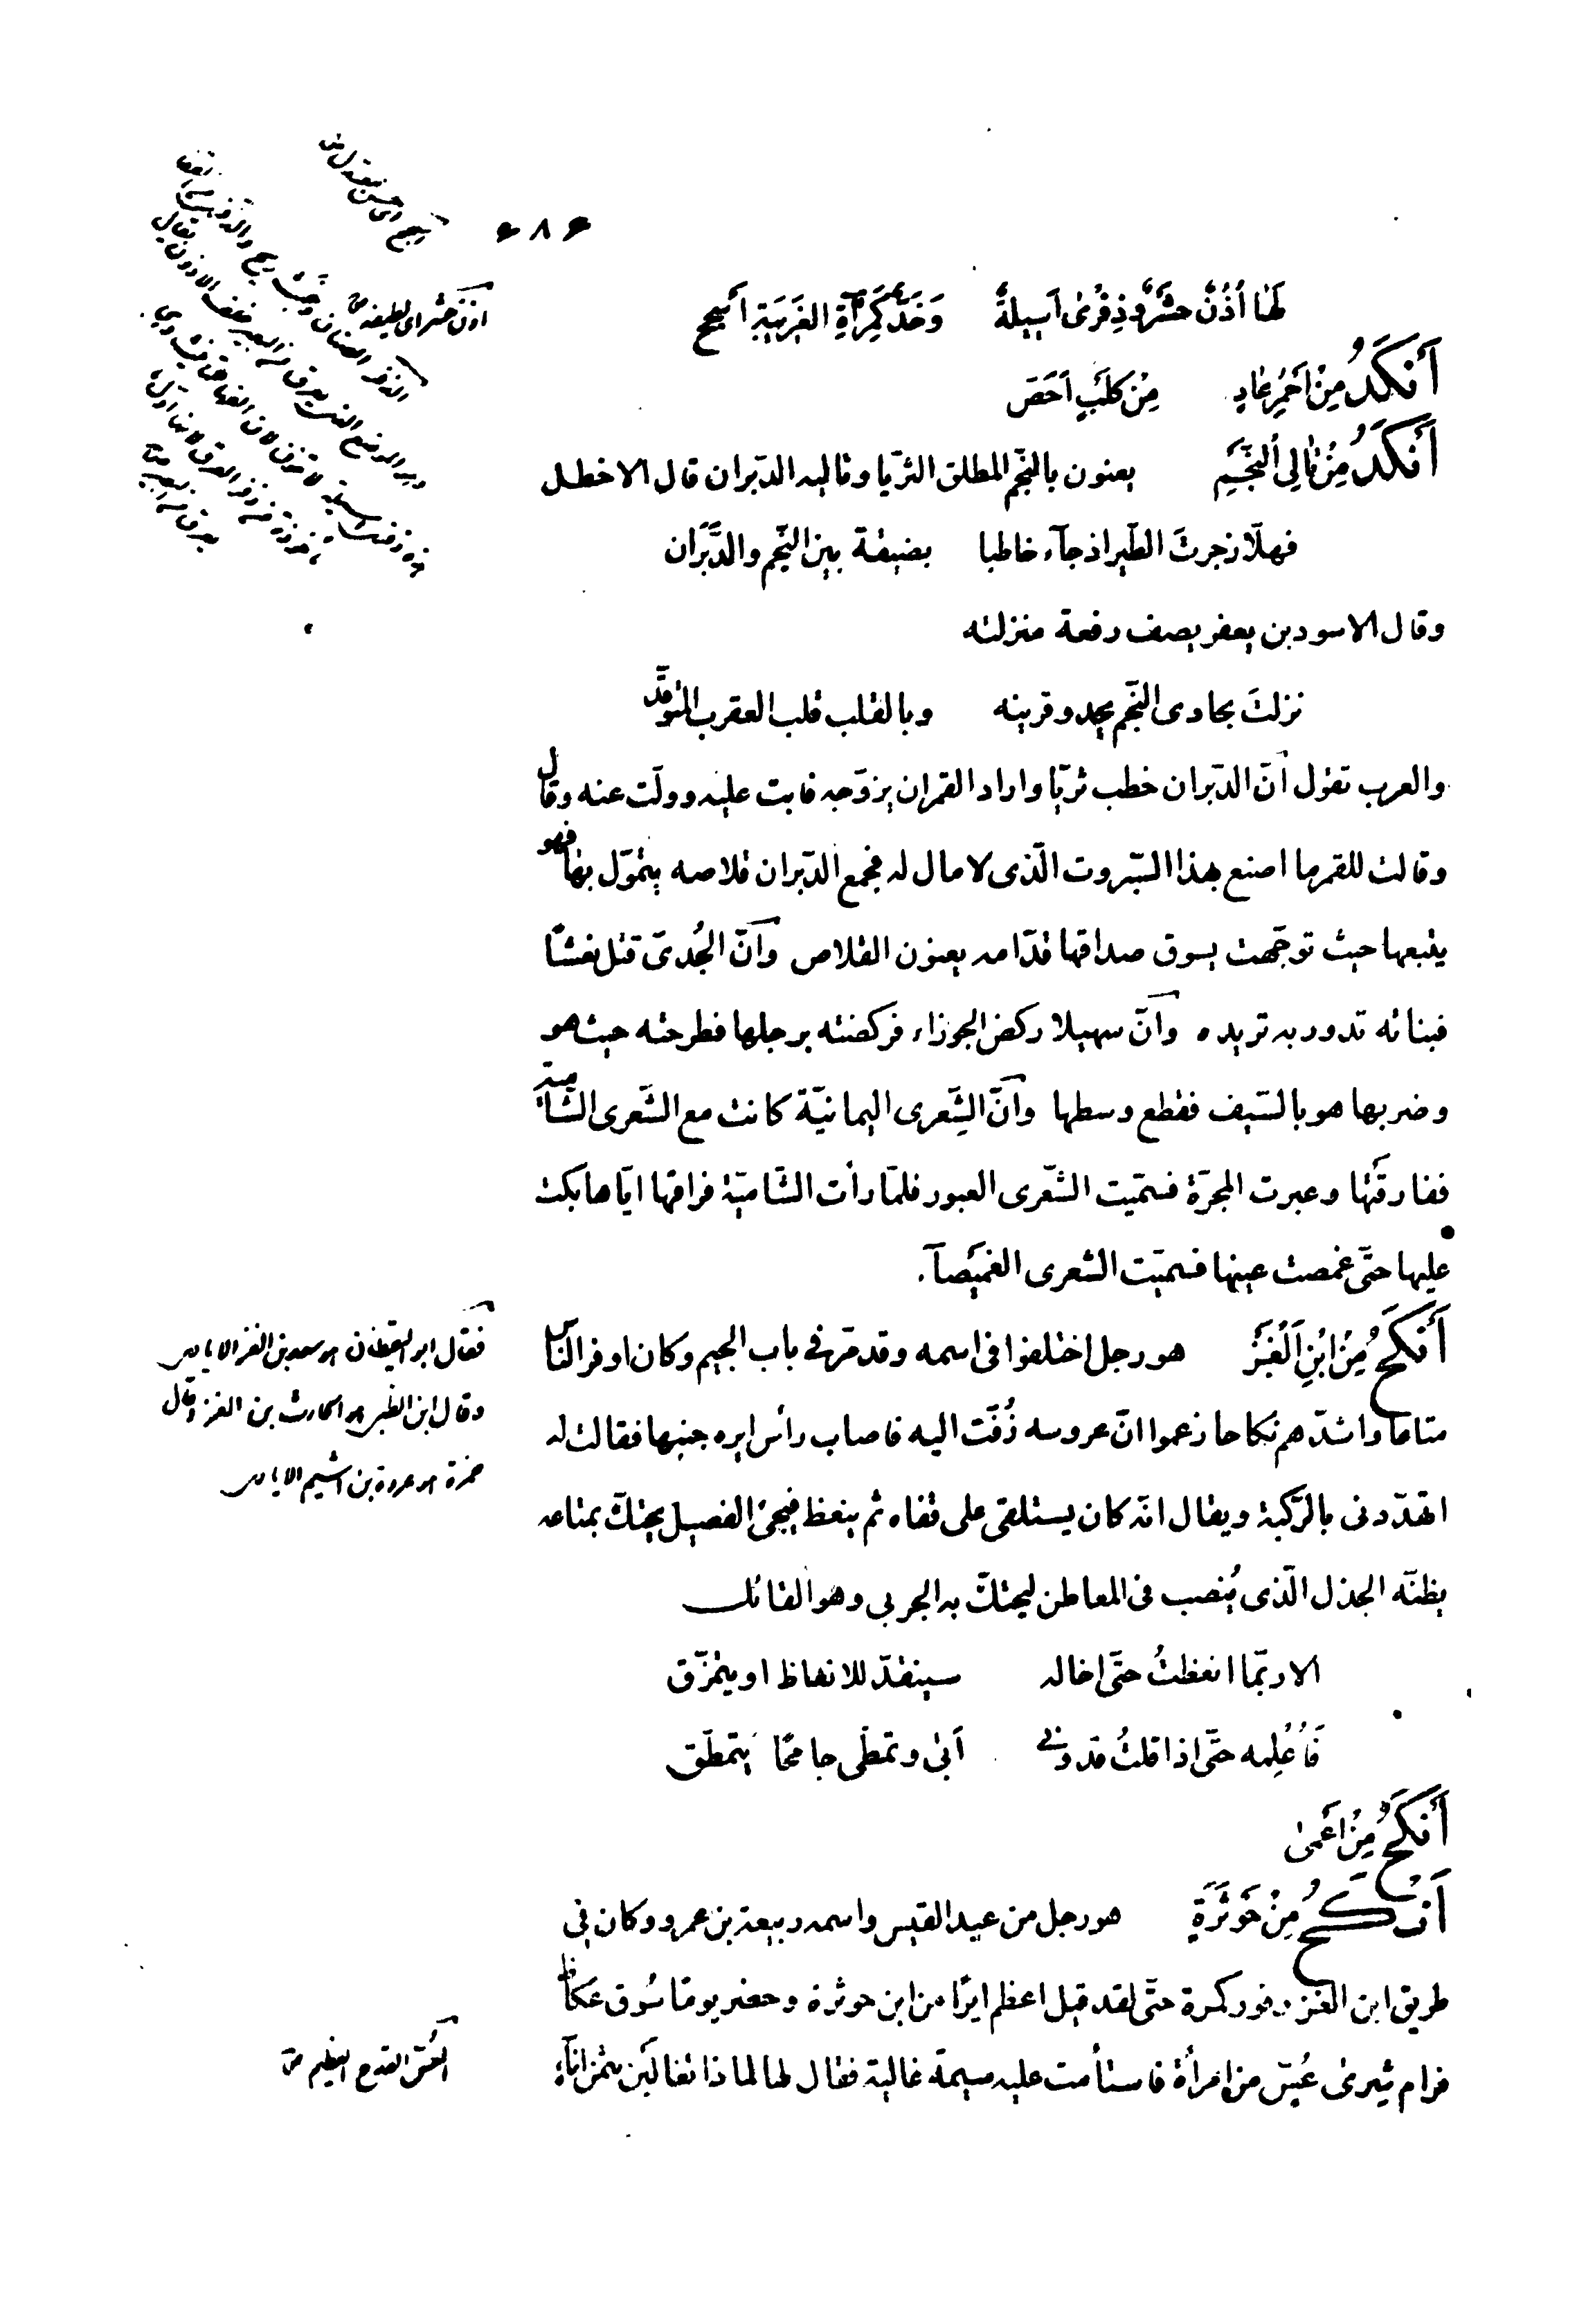 ۶۸۶
لَهٰا اُذُنٌ حَشْرٌ وذِفْرٰى اَسِيلةٌ وَخَدٌّ كَمِرآةِ الغَرِيبَةِ اَسْجَحُ
أَنْكَدُ مِنْ اَحْمَرِ عٰادٍ مِنْ كَلْبِ اَحَصّ
أَنْكَدُ مِنْ تٰالِى النَّجْمِ يعنون بالنّجم المطلق الثريّا وتاليه الدّبران قال الاخطل
فهلّا زجرتَ الطّير اذ جآء خاطبا بضيقة بين النّجم والدَّبَران
وقال الاسود بن يعفر يصف رفعة منزلته
نزلتَ بحادى النّجم يحدو قرينه وبالقلب قلب العقرب المتوقّد
والعرب تقول أنّ الدّبران خطب ثريّا واراد القمر ان يزوّجه فابت عليه وولّت عنه وقال
وقالت للقمر ما اصنع بهذا السّبروت الّذى لا مال له فجمع الدّبران قلاصه يتموّل بها فهو
يتبعها حيث توجّهت يسوق صداقها قدّامه يعنون القلاص وأنّ الجُدىّ قتل نعشًا
فبناته تدور به تريده وأنّ سهيلا ركض الجوزاء فركضته برجلها فطرحته حيث هو
وضربها هو بالسّيف فقطع وسطها وأنّ الشِّعرى اليمانيّة كانت مع الشّعرى الشّاميّة
ففارقَتْها وعبرت المجرّة فسمّيت الشّعرى العبور فلمّا رأت الشّاميّة فراقها ايّاها بكت
عليها حتّى غمصت عينها فسميّت الشعرى الغميصآء
أَنْكَحُ مِنْ ابْنِ اَلْغَزَ هو رجل اختلفوا فى اسمه وقد مرّ فى باب الجيم وكان اوفر النّاس
متاعا واشدّهم نكاحا زعموا انّ عروسه زُفّت اليه فاصاب رأس ايره جنبها فقالت له
اتهدّدنى بالرّكبة ويقال انّه كان يستلقى على قفاه ثم ينعظ فيجئ الفصيل يحتكّ بمتاعه
يظنّه الجذل الّذى يُنصب فى المعاطن ليحتكّ به الجربى وهو القائل
الا ربّما انعظتُ حتّى اخاله سينقدّ للانعاظ او يتمزّق
فَاُعْلِمه حتّى اذا قلتُ قد ونى اَبىٰ وتمطّى جامحًا يتمطّق
أَنْكَحُ مِنْ اَعْمىٰ
أَنْكَحُ مِنْ حَوْثَرَةٍ هو رجل من عبد القيس واسمه ربيعة بن عمرو وكان فى
طريق ابن الغز وفور كمرة حتّى لقد قيل اعظم ايرًا من ابن حوثرة وحضر يومًا سُوق عكاظ
فرام شِرىٰ عُسّ من امرأة فاستأمت عليه سيمة غالية فقال لها لماذا تغالين بثمن انآء
اذن حشر اى لطيفة
فقال ابو اليقظان هو سعد بن الغز الايادى
وقال ابن الكلبى هو الحارث بن الغز وقال
حمزة هو عروة بن اشيم الايادى
العُسّ القدح العظيم